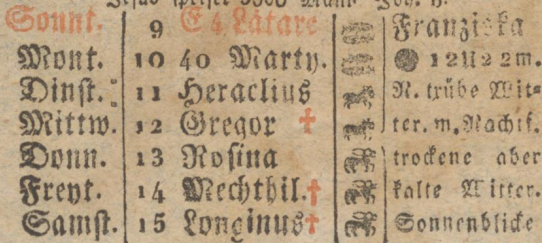 Jesus speiset 5000 Mann Joh. 6.
Sonnt. 9 E 4 Lätare Franziska
Mont. 10 40 Marty. 12 U 22 m.
Dinst. 11 Heraclius N. trübe Wit=
Mittw. 12 Gregor † ter. m. Nachts.
Donn. 13 Rosina trockene aber
Freyt. 14 Mechthil. † kalte Witter.
Samst. 15 Longinus † Sonnenblicke